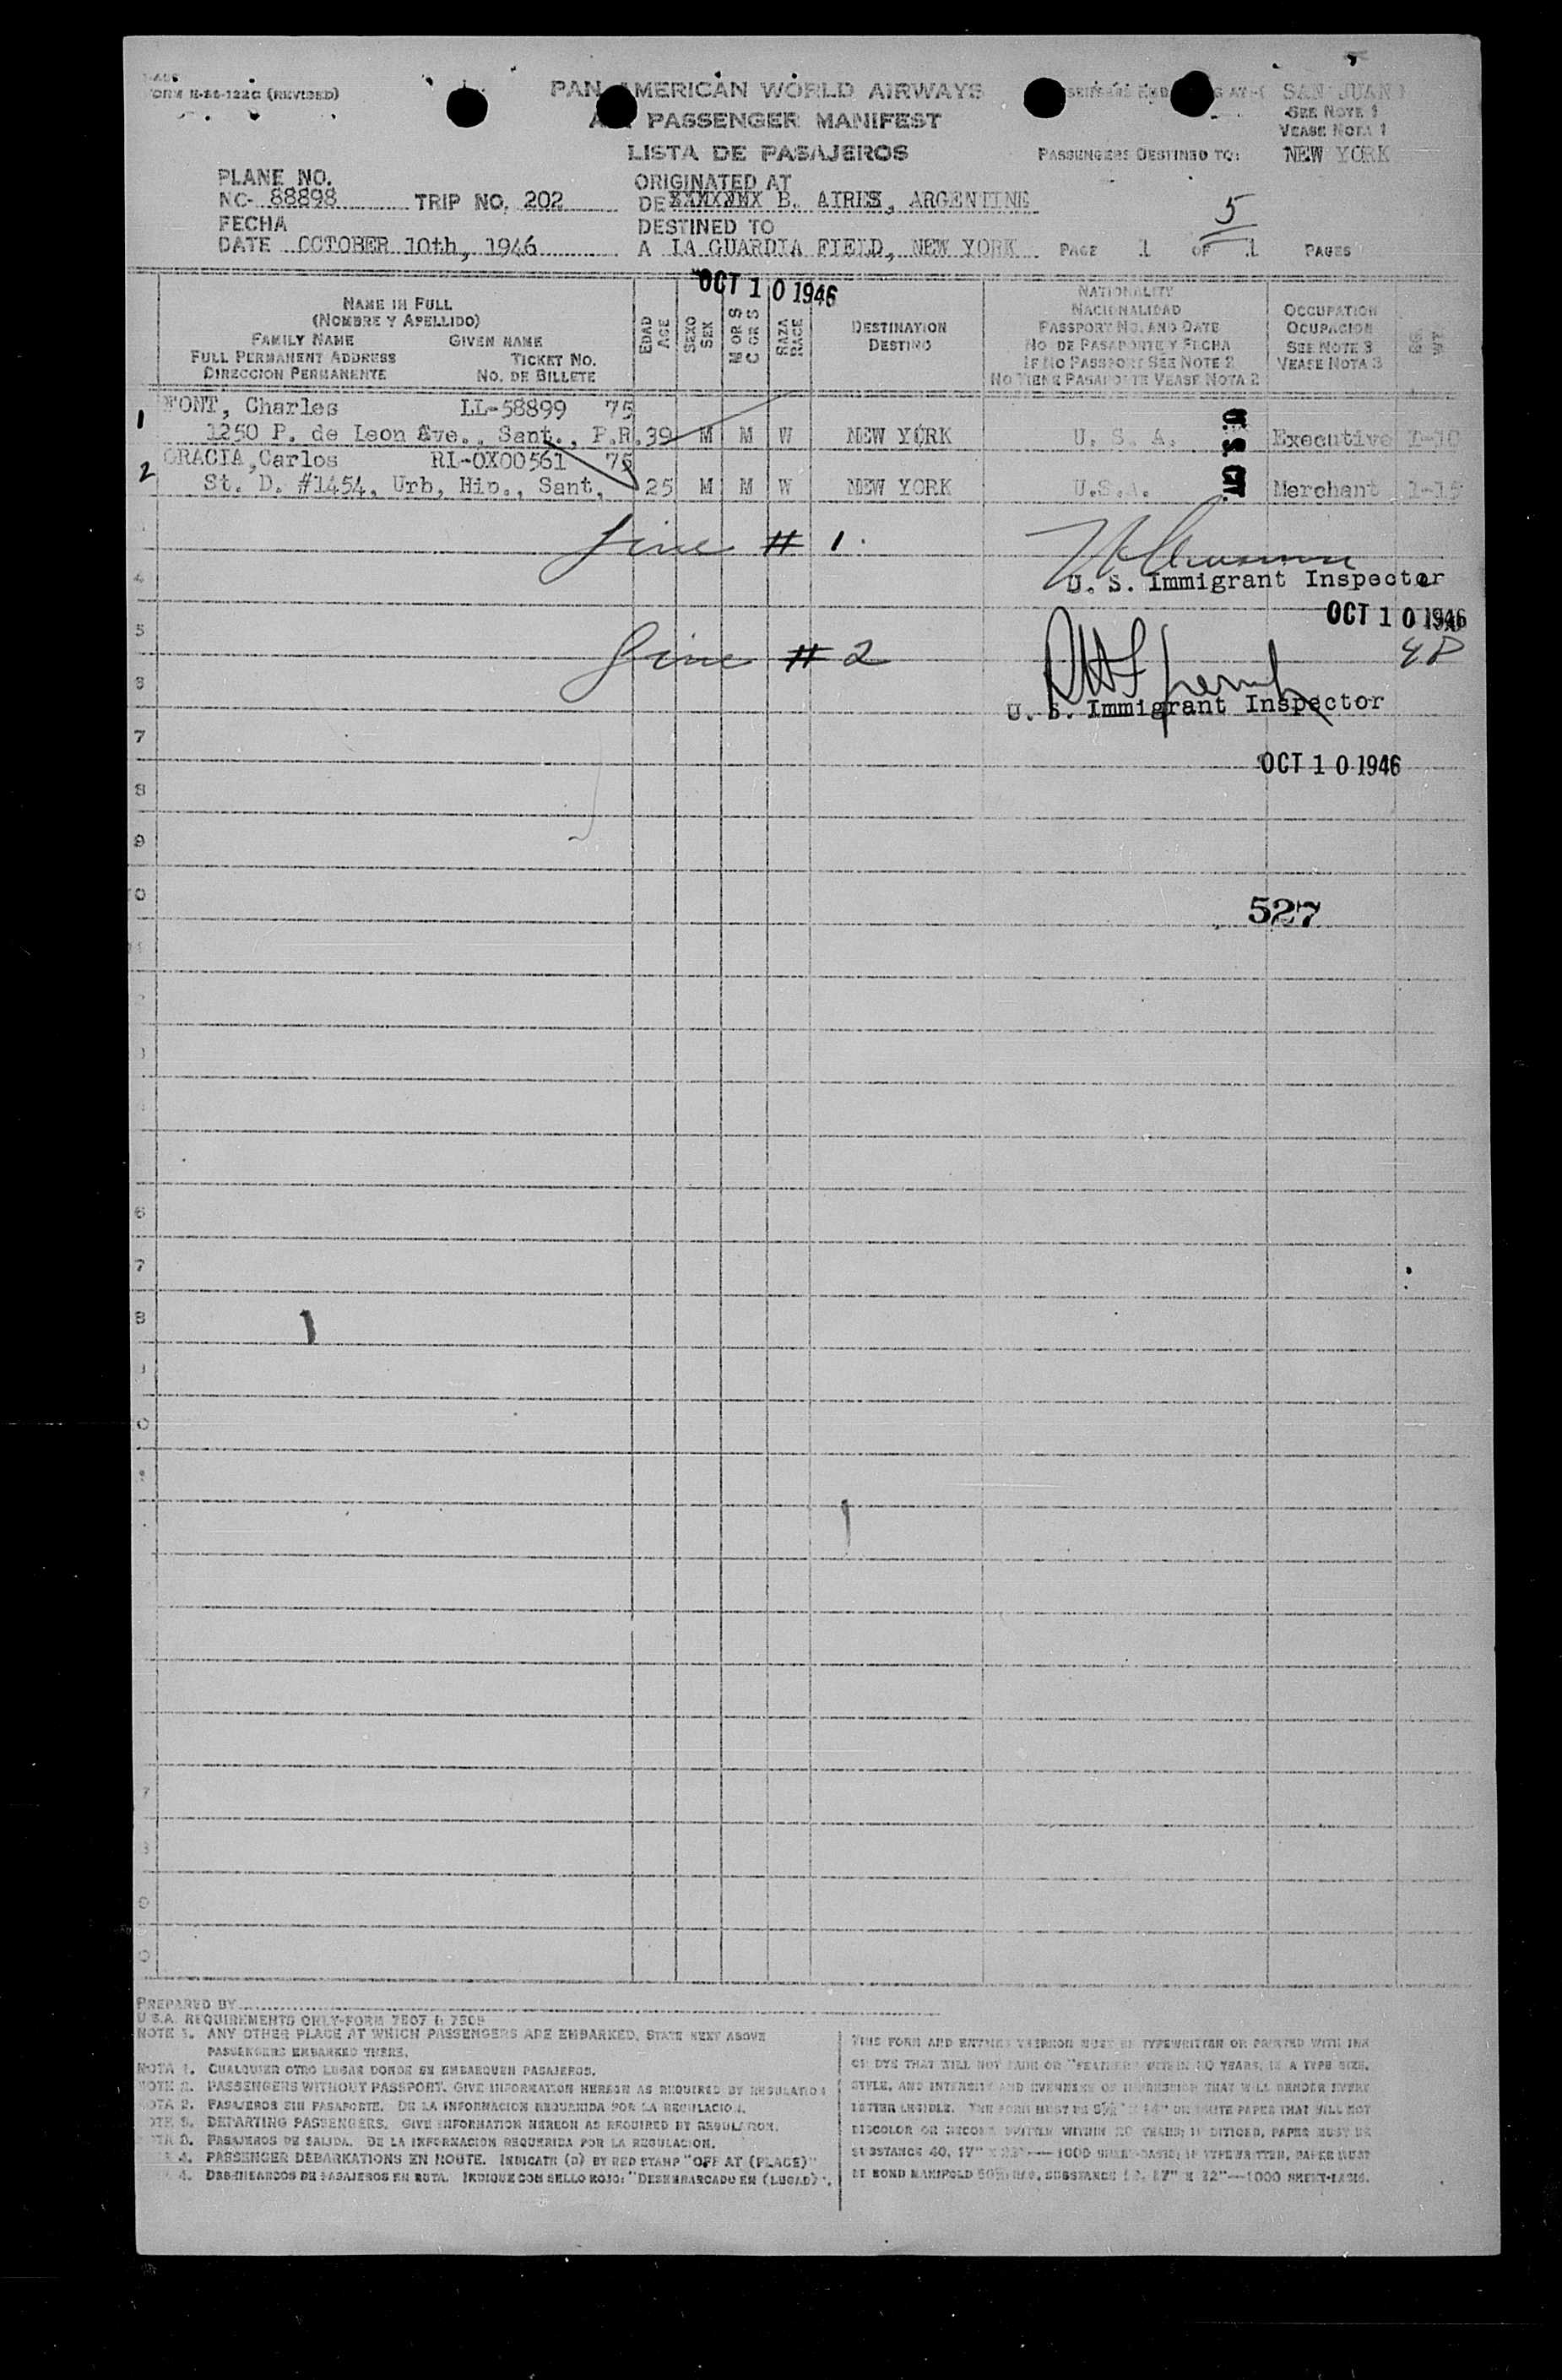 FORM H-86-122G (REVISED)
PAN AMERICAN WORLD AIRWAYS
PASSENGER MANIFEST
LISTA DE PASAJEROS
SAN JUAN
SEE NOTE 1
VEASE NOTA 1
PASSENGERS DESTINED TO: NEW YORK
PLANE NO.
NC- 88898 TRIP NO. 202
ORIGINATED AT
DE B. AIRES, ARGENTINE
FECHA
DATE OCTOBER 10th, 1946
DESTINED TO
A LA GUARDIA FIELD, NEW YORK
PAGE 1 OF 1 PAGES
5
OCT 10 1946
NAME IN FULL
(NOMBRE Y APELLIDO)
FAMILY NAME GIVEN NAME
FULL PERMANENT ADDRESS TICKET NO.
DIRECCION PERMANENTE NO. DE BILLETE
EDAD AGE
SEXO SEX
M OR S C OR S
RAZA RACE
DESTINATION
DESTINO
NATIONALITY
NACIONALIDAD
PASSPORT NO. AND DATE
NO DE PASAPORTE Y FECHA
IF NO PASSPORT SEE NOTE 2
NO TIENE PASAPORTE VEASE NOTA 2
OCCUPATION
OCUPACION
SEE NOTE 3
VEASE NOTA 3
1 FONT, Charles LL-58899 75
1250 P. de Leon Ave., Sant., P.R. 39 M M W NEW YORK U. S. A. Executive 1-10
2 GRACIA, Carlos RL-OX00561 75
St. D. #1454, Urb, Hip., Sant, 25 M M W NEW YORK U.S.A. Merchant 1-15
U. S. CIT.
Line # 1.
4
U. S. Immigrant Inspector
OCT 10 1946
5
Line # 2
6
U. S. Immigrant Inspector
7
OCT 10 1946
8
9
527
6
7
8
PREPARED BY
U.S.A. REQUIREMENTS ONLY-FORM 7507 & 7509
NOTE 1. ANY OTHER PLACE AT WHICH PASSENGERS ARE EMBARKED, STATE NEXT ABOVE
PASSENGERS EMBARKED THERE.
NOTA 1. CUALQUIER OTRO LUGAR DONDE SE EMBARQUEN PASAJEROS.
NOTE 2. PASSENGERS WITHOUT PASSPORT. GIVE INFORMATION HEREON AS REQUIRED BY REGULATION
NOTA 2. PASAJEROS SIN PASAPORTE. DE LA INFORMACION REQUERIDA POR LA REGULACION.
NOTE 3. DEPARTING PASSENGERS. GIVE INFORMATION HEREON AS REQUIRED BY REGULATION.
NOTA 3. PASAJEROS DE SALIDA. DE LA INFORMACION REQUERIDA POR LA REGULACION.
4. PASSENGER DEBARKATIONS EN ROUTE. INDICATE (D) BY RED STAMP "OFF AT (PLACE)"
4. DESEMBARCOS DE PASAJEROS EN RUTA. INDIQUE CON SELLO ROJO: "DESEMBARCADO EN (LUGAR)".
THIS FORM AND ENTRIES THEREON MUST BE TYPEWRITTEN OR PRINTED WITH INK
OR DYE THAT WILL NOT FADE OR "FEATHER" WITHIN 20 YEARS, IN A TYPE SIZE,
STYLE, AND INTENSITY AND EVENNESS OF IMPRESSION THAT WILL RENDER EVERY
LETTER LEGIBLE. THE FORM MUST BE 8½" X 14" ON WHITE PAPER THAT WILL NOT
DISCOLOR OR WITHIN 20 YEARS; IF DITTOED, PAPER MUST BE
SUBSTANCE 40, 17" X 22"—1000 SHEET-BASIS; IF TYPEWRITTEN, PAPER MUST
BE BOND MANIFOLD 50% RAG, SUBSTANCE 17" X 22"—1000 SHEET-BASIS.